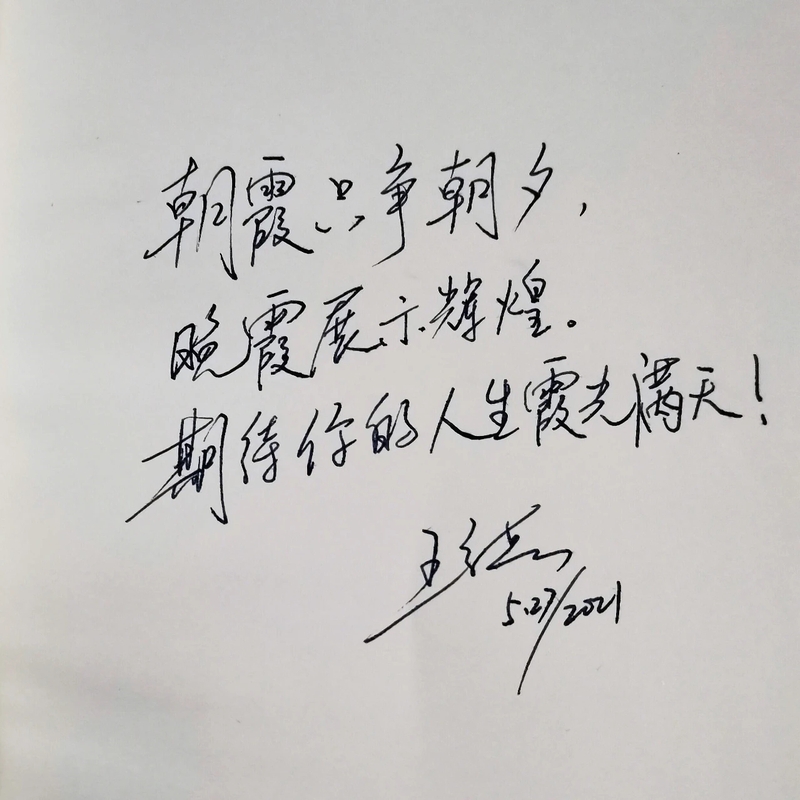 朝霞只争朝夕，
晚霞展示辉煌。
期待你的人生霞光满天！
王
5.27/2021